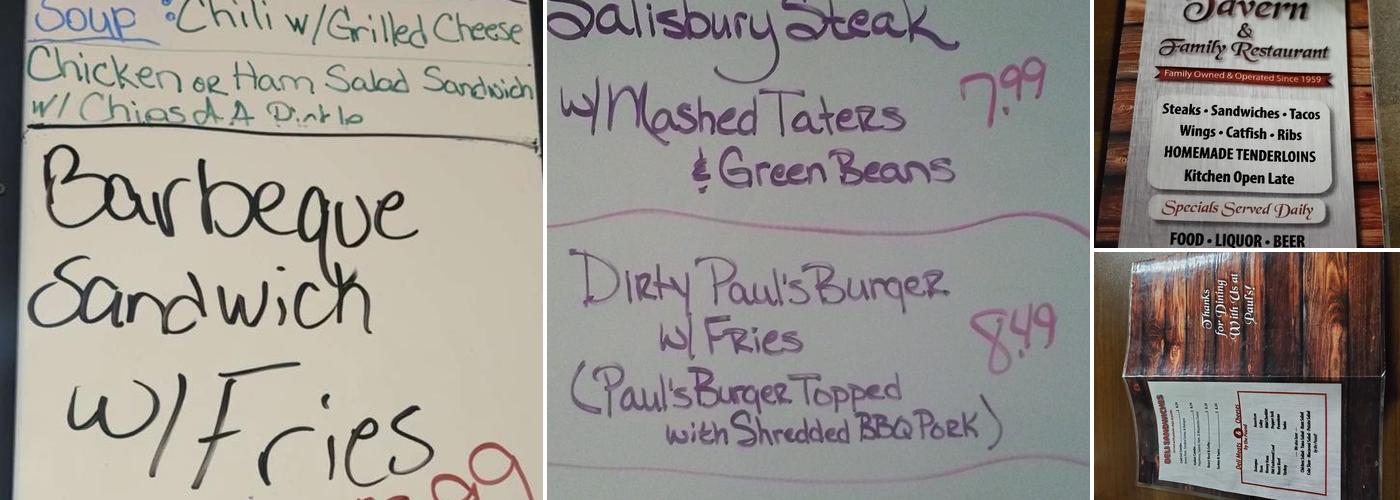 Soup: Chili w/Grilled Cheese
Chicken or Ham Salad Sandwich
w/ Chips & A Pickle
Barbeque
Sandwich
w/Fries
99
Salisbury Steak
w/Mashed Taters
7.99
& Green Beans
Dirty Paul's Burger
w/ Fries
8.49
(Paul's Burger Topped
with Shredded BBQ Pork)
Tavern
&
Family Restaurant
Family Owned & Operated Since 1959
Steaks • Sandwiches • Tacos
Wings • Catfish • Ribs
HOMEMADE TENDERLOINS
Kitchen Open Late
Specials Served Daily
FOOD • LIQUOR • BEER
Thanks
for Dining
With Us at
Paul's!
DELI SANDWICHES
Deli Meats & Cheeses